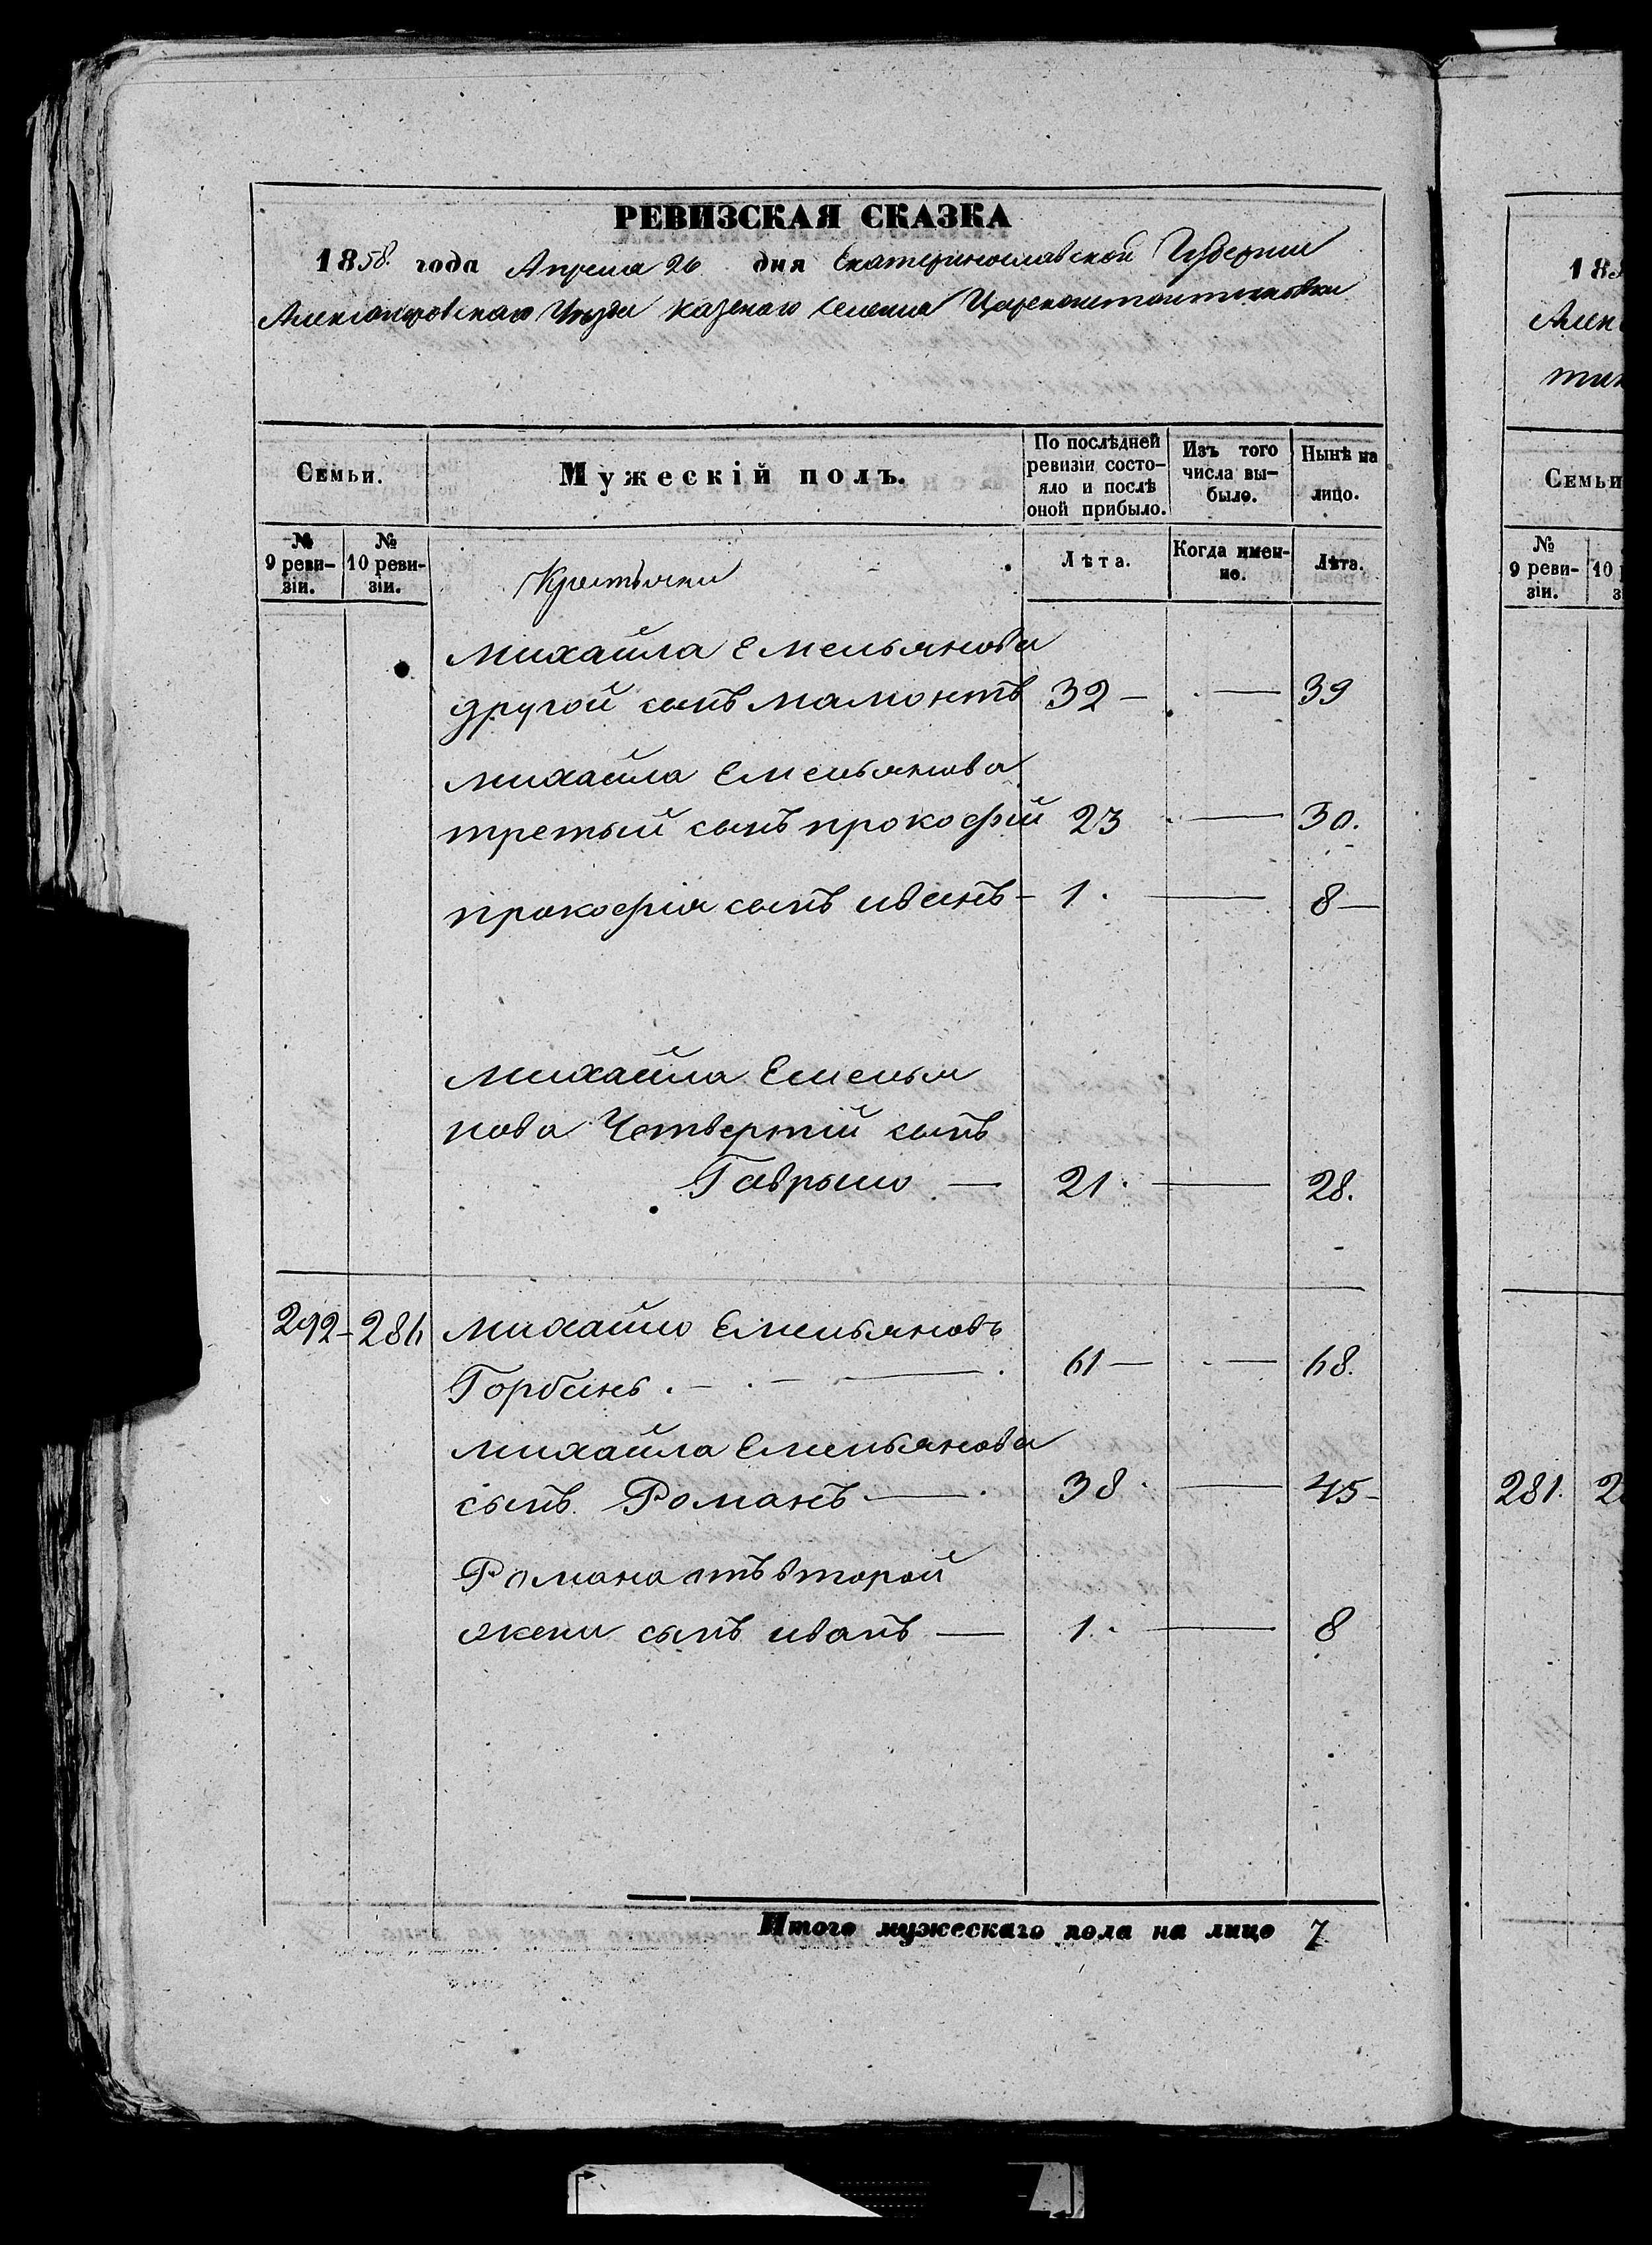 РЕВИЗСКАЯ СКАЗКА
1858 года Апреля 26 дня Екатеринославской Губернии
Александровскаго Уезда казенаго селения Цареконстантиновки
Семьи.
Мужескій полъ.
По послѣдней ревизіи состо-
яло и послѣ оной прибыло.
Изъ того числа вы-
было.
Нынѣ на лицо.
№ 9 реви-
зіи.
№ 10 реви-
зіи.
Крестьяне
Лѣта.
Когда имен-
но.
Лѣта.
Михайла Емельянова
другой сынъ мамонтъ 32 — — 39
Михайла Емельянова
третый сынъ прокофій 23 — 30.
прокофія сынъ иванъ — 1. — 8 —
Михайла Емелья
нова Четвертій сынъ
Гаврыло — 21. — 28.
292 — 286 Михайло Емельяновъ
Горбань. — 61 — — 68.
Михайла Емельянова
сынъ Романъ — 38. — 45 —
Романа отъ второй
жены сынъ иванъ — 1. — 8
Итого мужескаго пола на лицо 7
185
Алек
тин
Семьи
№ 9 реви-
зіи.
10
281. 2